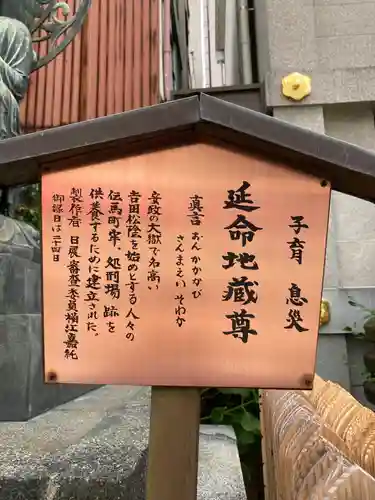 子育 息災
延命地蔵尊
真言 おん かかなび
さんまえい そわか
安政の大獄で名高い
吉田松陰を始めとする人々の
伝馬町牢、処刑場 跡を
供養するために建立された。
製作者 日展審査委員 横江嘉純
御縁日は二十四日